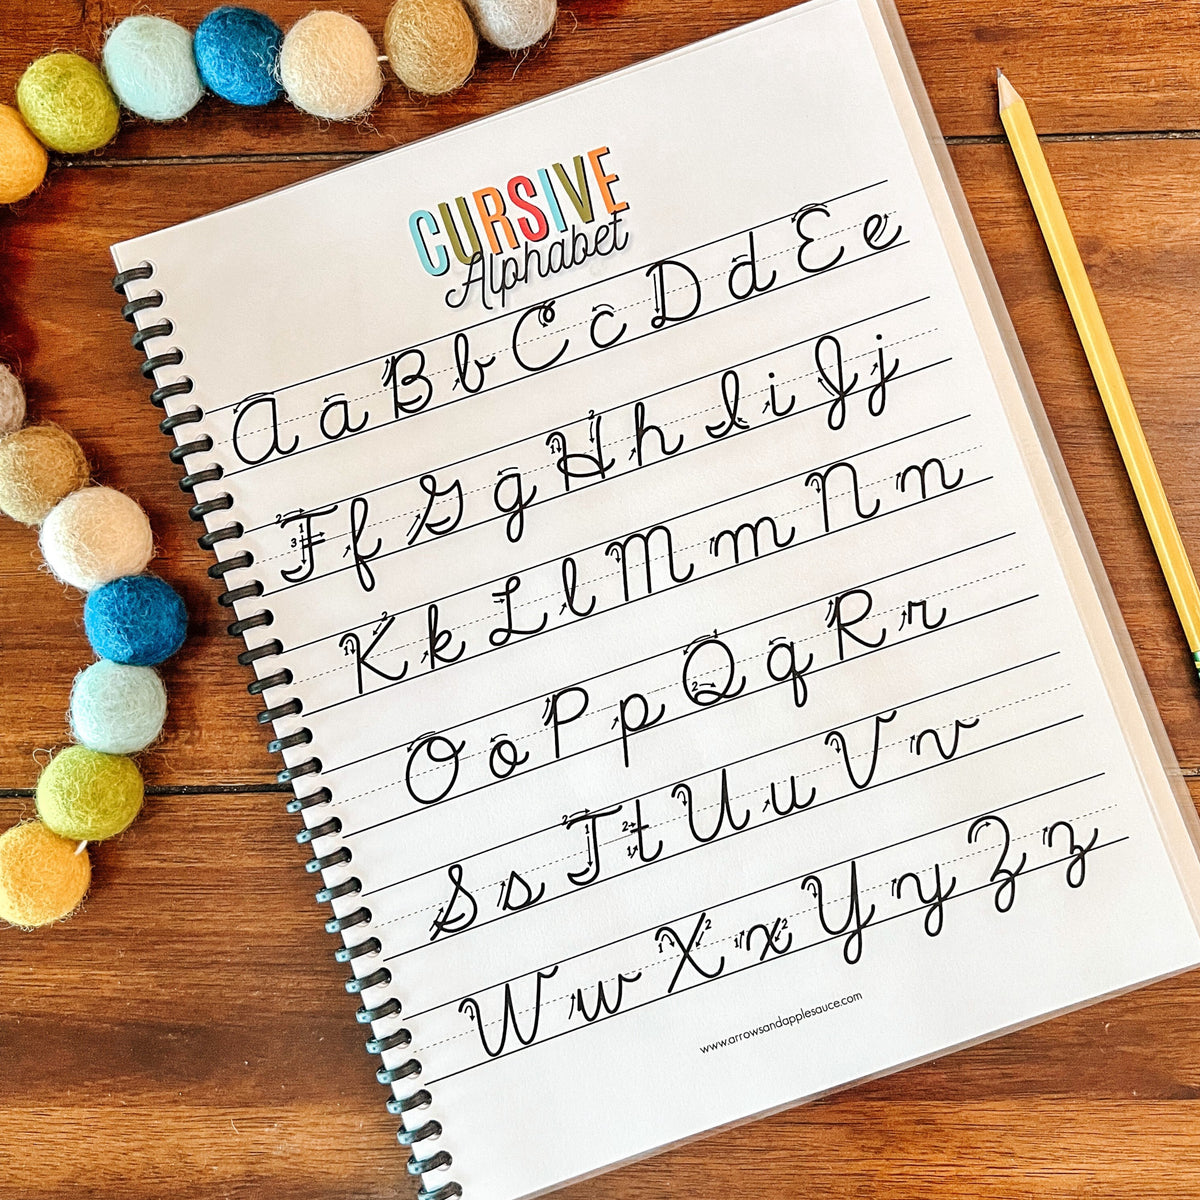 CURSIVE
Alphabet
A a B b C c D d E e
F f G g H h I i J j
K k L l M m N n
O o P p Q q R r
S s T t U u V v
W w X x Y y Z z
www.arrowsandapplesauce.com